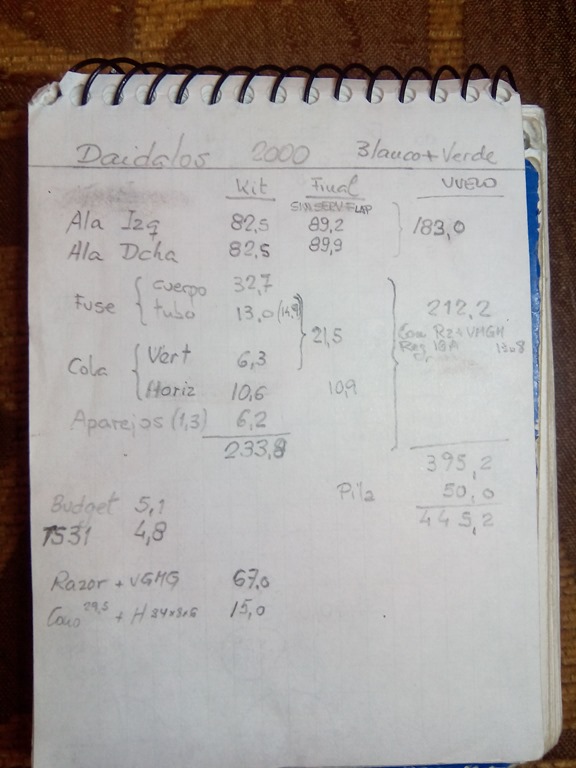 Daidalos 2000 Blanco+Verde
Kit Final VUELO
SIN SERV. FLAP
Ala Izq 82,5 89,2 183,0
Ala Dcha 82,5 89,9
Fuse cuerpo 32,7 212,2
tubo 13,0 21,5
Cola Vert 6,3
Horiz 10,6 10,9
Aparejos (1,3) 6,2
233,8
395,2
Pila 50,0
445,2
Budget 5,1
TS31 4,8
Razor + VGMG 67,0
Cono 29,5 + H 15,0